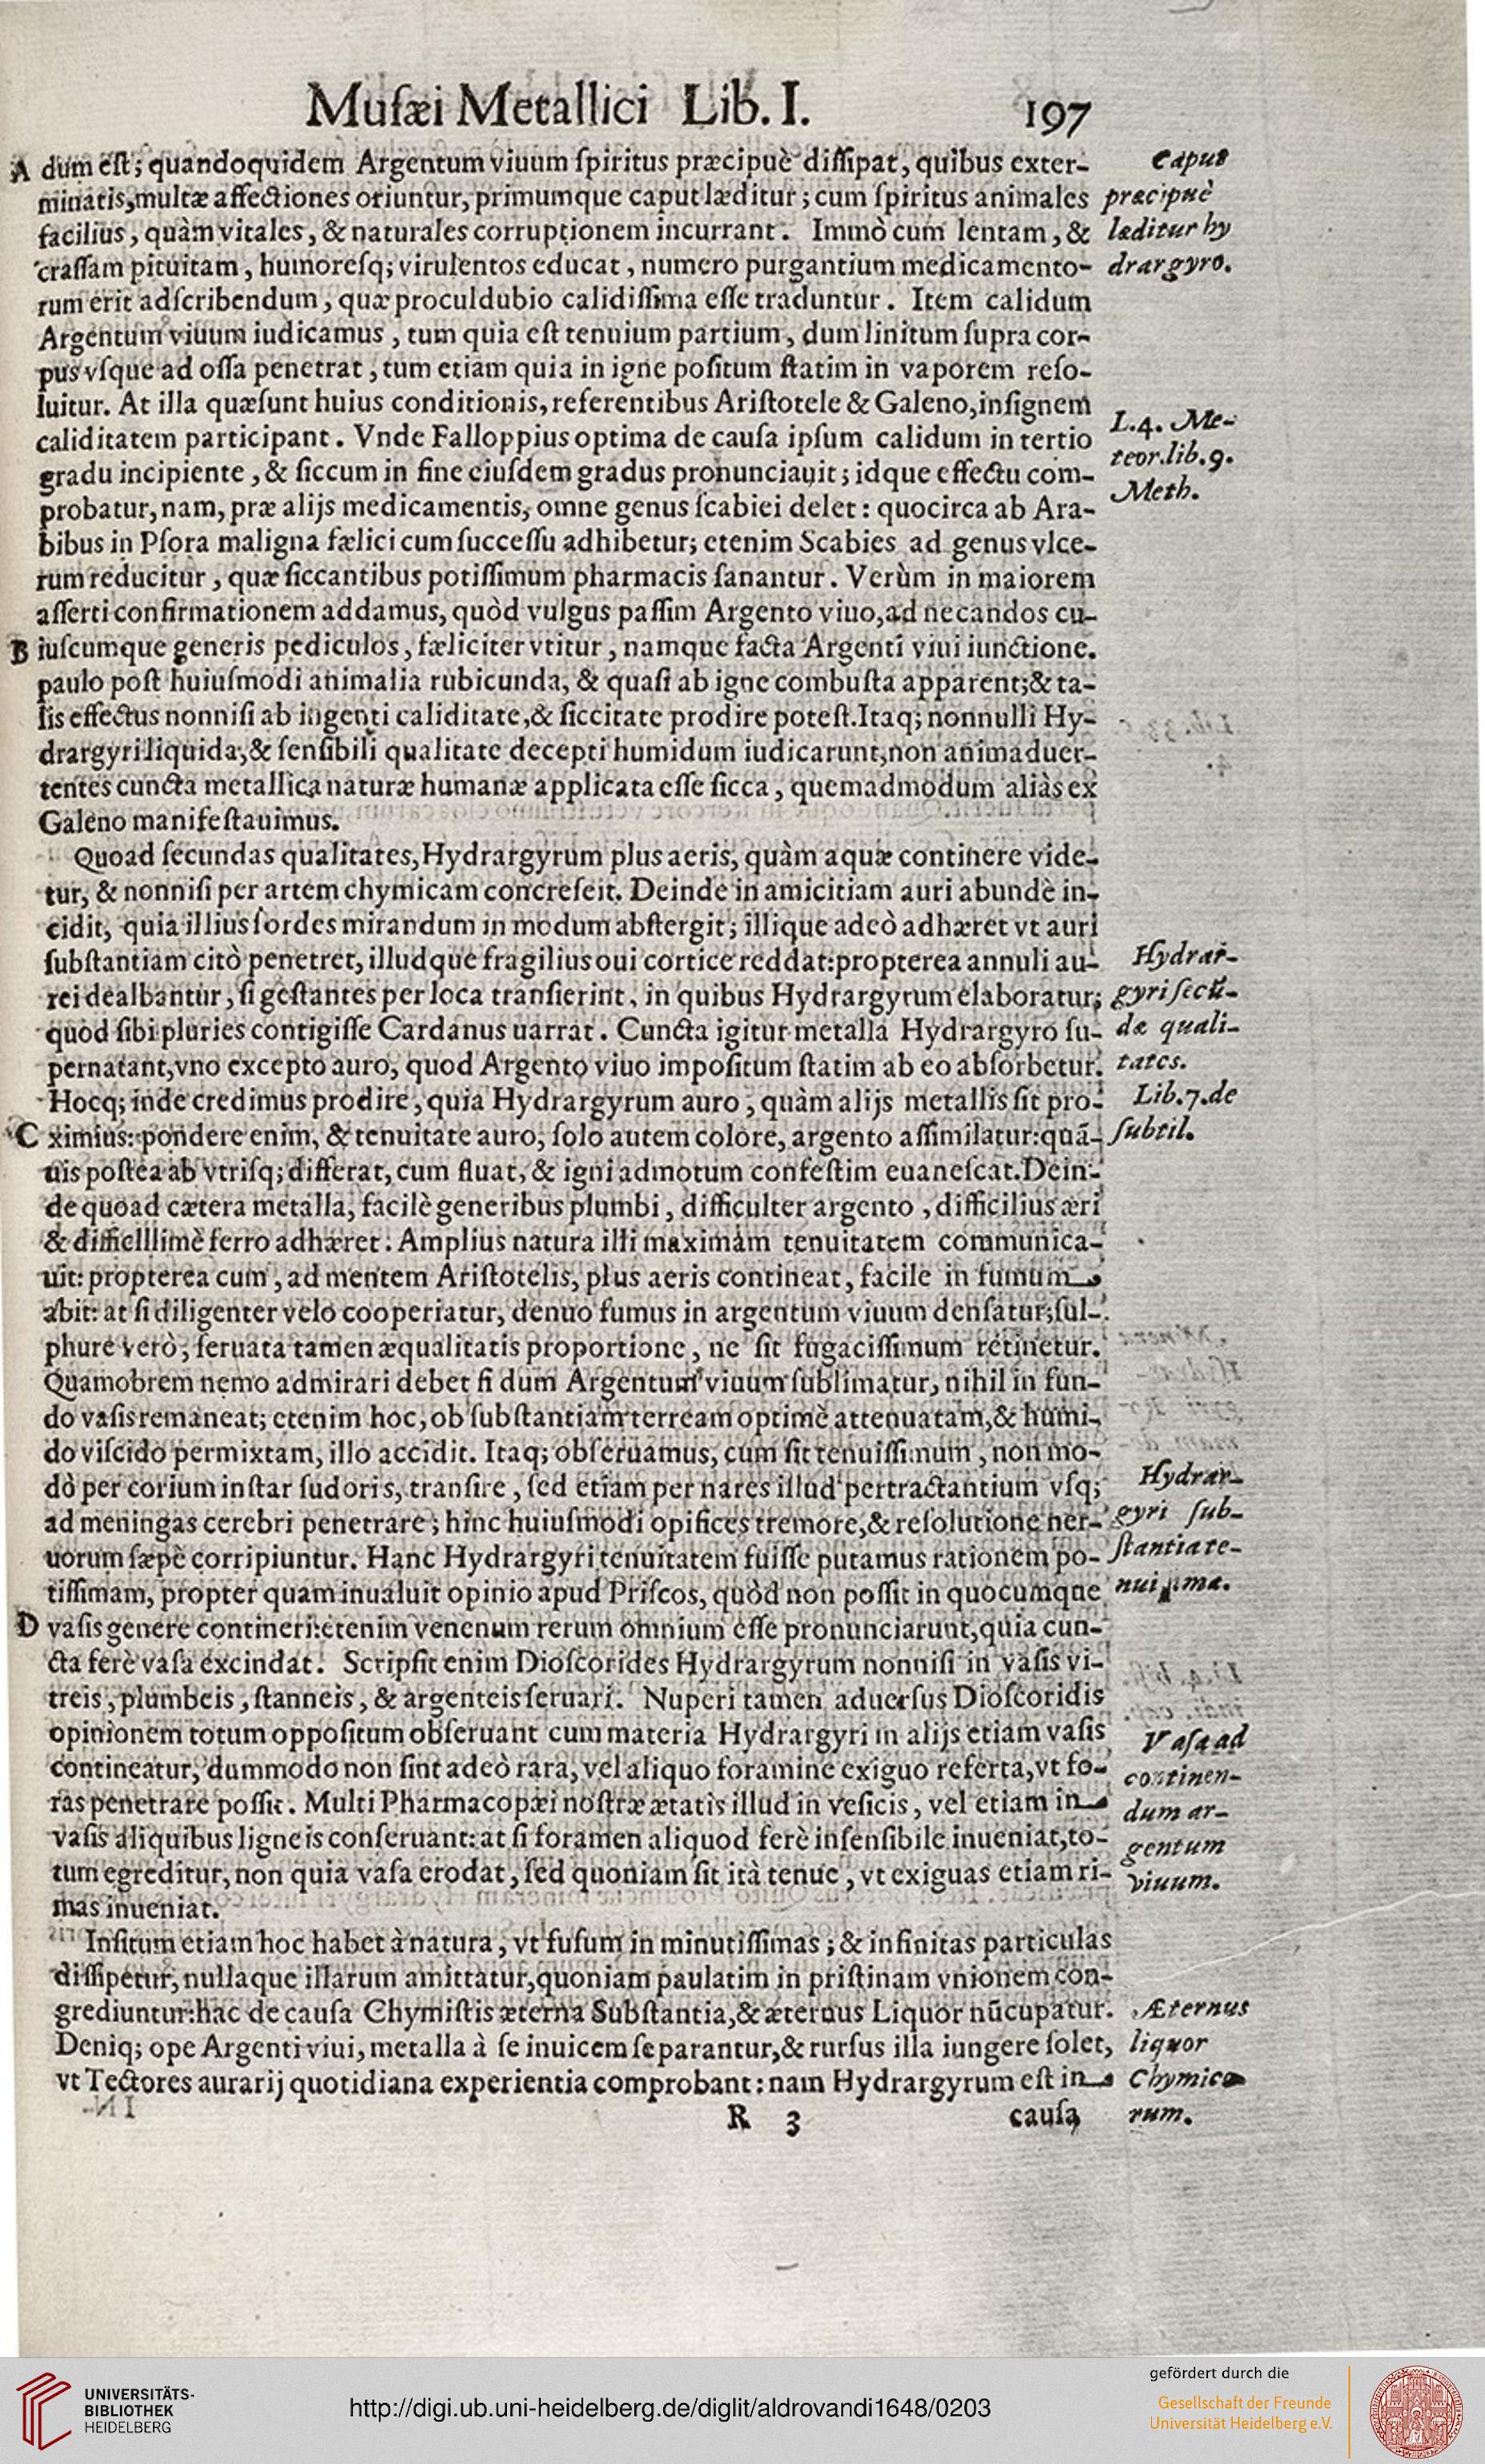 Musæi Metallici Lib. I. 197
A dum est; quandoquidem Argentum viuum spiritus præcipuè dissipat, quibus exter-
minatis, multæ affectiones oriuntur, primumque caput læditur; cum spiritus animales
facilius, quàm vitales, & naturales corruptionem incurrant. Immò cum lentam, &
crassam pituitam, humoresq; virulentos educat, numero purgantium medicamento-
rum erit adscribendum, quæ proculdubio calidissima esse traduntur. Item calidum
Argentum viuum iudicamus, tum quia est tenuium partium, dum linitum supra cor-
pus vsque ad ossa penetrat, tum etiam quia in igne positum statim in vaporem reso-
luitur. At illa quæ sunt huius conditionis, referentibus Aristotele & Galeno, insignem
caliditatem participant. Vnde Falloppius optima de causa ipsum calidum in tertio
gradu incipiente, & siccum in fine eiusdem gradus pronunciauit; idque effectu com-
probatur, nam, præ alijs medicamentis, omne genus scabiei delet: quocirca ab Ara-
bibus in Psora maligna fælici cum successu adhibetur; etenim Scabies ad genus vlce-
rum reducitur, quæ siccantibus potissimum pharmacis sanantur. Verùm in maiorem
asserti confirmationem addamus, quòd vulgus passim Argento viuo, ad necandos cu-
B iuscumque generis pediculos, fæliciter vtitur, namque facta Argenti viui iunctione.
paulo post huiusmodi animalia rubicunda, & quasi ab igne combusta apparent; & ta-
lis effectus nonnisi ab ingenti caliditate, & siccitate prodire potest. Itaq; nonnulli Hy-
drargyri liquida, & sensibili qualitate decepti humidum iudicarunt, non animaduer-
tentes cuncta metallica naturæ humanæ applicata esse sicca, quemadmodum aliàs ex
Galeno manifestauimus.
Quoad secundas qualitates, Hydrargyrum plus aeris, quàm aquæ continere vide-
tur, & nonnisi per artem chymicam concrescit. Deinde in amicitiam auri abundè in-
cidit, quia illius sordes mirandum in modum abstergit; illique adeò adhæret vt auri
substantiam citò penetret, illudque fragilius oui cortice reddat: propterea annuli au-
rei dealbantur, si gestantes per loca transierint, in quibus Hydrargyrum elaboratur;
quod sibi pluries contigisse Cardanus narrat. Cuncta igitur metalla Hydrargyro su-
pernatant, vno excepto auro, quod Argento viuo impositum statim ab eo absorbetur.
Hocq; inde credimus prodire, quia Hydrargyrum auro, quàm alijs metallis sit pro-
C ximius: pondere enim, & tenuitate auro, solo autem colore, argento assimilatur: quã-
uis postea ab vtrisq; differat, cum fluat, & igni admotum confestim euanescat. Dein-
de quoad cætera metalla, facilè generibus plumbi, difficulter argento, difficilius æri
& difficlllimè ferro adhæret. Amplius natura illi maximam tenuitatem communica-
uit: propterea cum, ad mentem Aristotelis, plus aeris contineat, facile in fumum
abit: at si diligenter velo cooperiatur, denuo fumus in argentum viuum densatur; sul-
phure verò, seruata tamen æqualitatis proportione, ne sit fugacissimum retinetur.
Quamobrem nemo admirari debet si dum Argentum viuum sublimatur, nihil in fun-
do vasis remaneat; etenim hoc, ob substantiam terream optimè attenuatam, & humi-
do viscido permixtam, illo accidit. Itaq; obseruamus, cum sit tenuissimum, non mo-
dò per corium instar sudoris, transire, sed etiam per nares illud pertractantium vsq;
ad meningas cerebri penetrare; hinc huiusmodi opifices tremore, & resolutione ner-
uorum sæpè corripiuntur. Hanc Hydrargyri tenuitatem fuisse putamus rationem po-
tissimam, propter quam inualuit opinio apud Priscos, quòd non possit in quocumque
D vasis genere contineri: etenim venenum rerum omnium esse pronunciarunt, quia cun-
cta ferè vasa excindat. Scripsit enim Dioscorides Hydrargyrum nonnisi in vasis vi-
treis, plumbeis, stanneis, & argenteis seruari. Nuperi tamen aduersus Dioscoridis
opinionem totum oppositum obseruant cum materia Hydrargyri in alijs etiam vasis
contineatur, dummodo non sint adeò rara, vel aliquo foramine exiguo referta, vt fo-
ras penetrare possit. Multi Pharmacopæi nostræ ætatis illud in vesicis, vel etiam in
vasis aliquibus ligneis conseruant: at si foramen aliquod ferè insensibile inueniat, to-
tum egreditur, non quia vasa erodat, sed quoniam sit ità tenue, vt exiguas etiam ri-
mas inueniat.
Insitum etiam hoc habet à natura, vt fusum in minutissimas; & infinitas particulas
dissipetur, nullaque illarum amittatur, quoniam paulatim in pristinam vnionem con-
grediuntur: hac de causa Chymistis æterna Substantia, & æternus Liquor nũcupatur.
Deniq; ope Argenti viui, metalla à se inuicem separantur, & rursus illa iungere solet,
vt Tectores aurarij quotidiana experientia comprobant: nam Hydrargyrum est in
R 3 causa
Caput
præcipuè
læditur hy
drargyro.
L.4. Me-
teor. lib.9.
Meth.
Hydrar-
gyri secũ-
dæ quali-
tates.
Lib.7.de
subtil.
Hydrar-
gyri sub-
stantia te-
nuissima.
Vasa ad
continen-
dum ar-
gentum
viuum.
Æternus
liquor
Chymico
rum.
UNIVERSITÄTS-
BIBLIOTHEK
HEIDELBERG
http://digi.ub.uni-heidelberg.de/diglit/aldrovandi1648/0203
gefördert durch die
Gesellschaft der Freunde
Universität Heidelberg e.V.